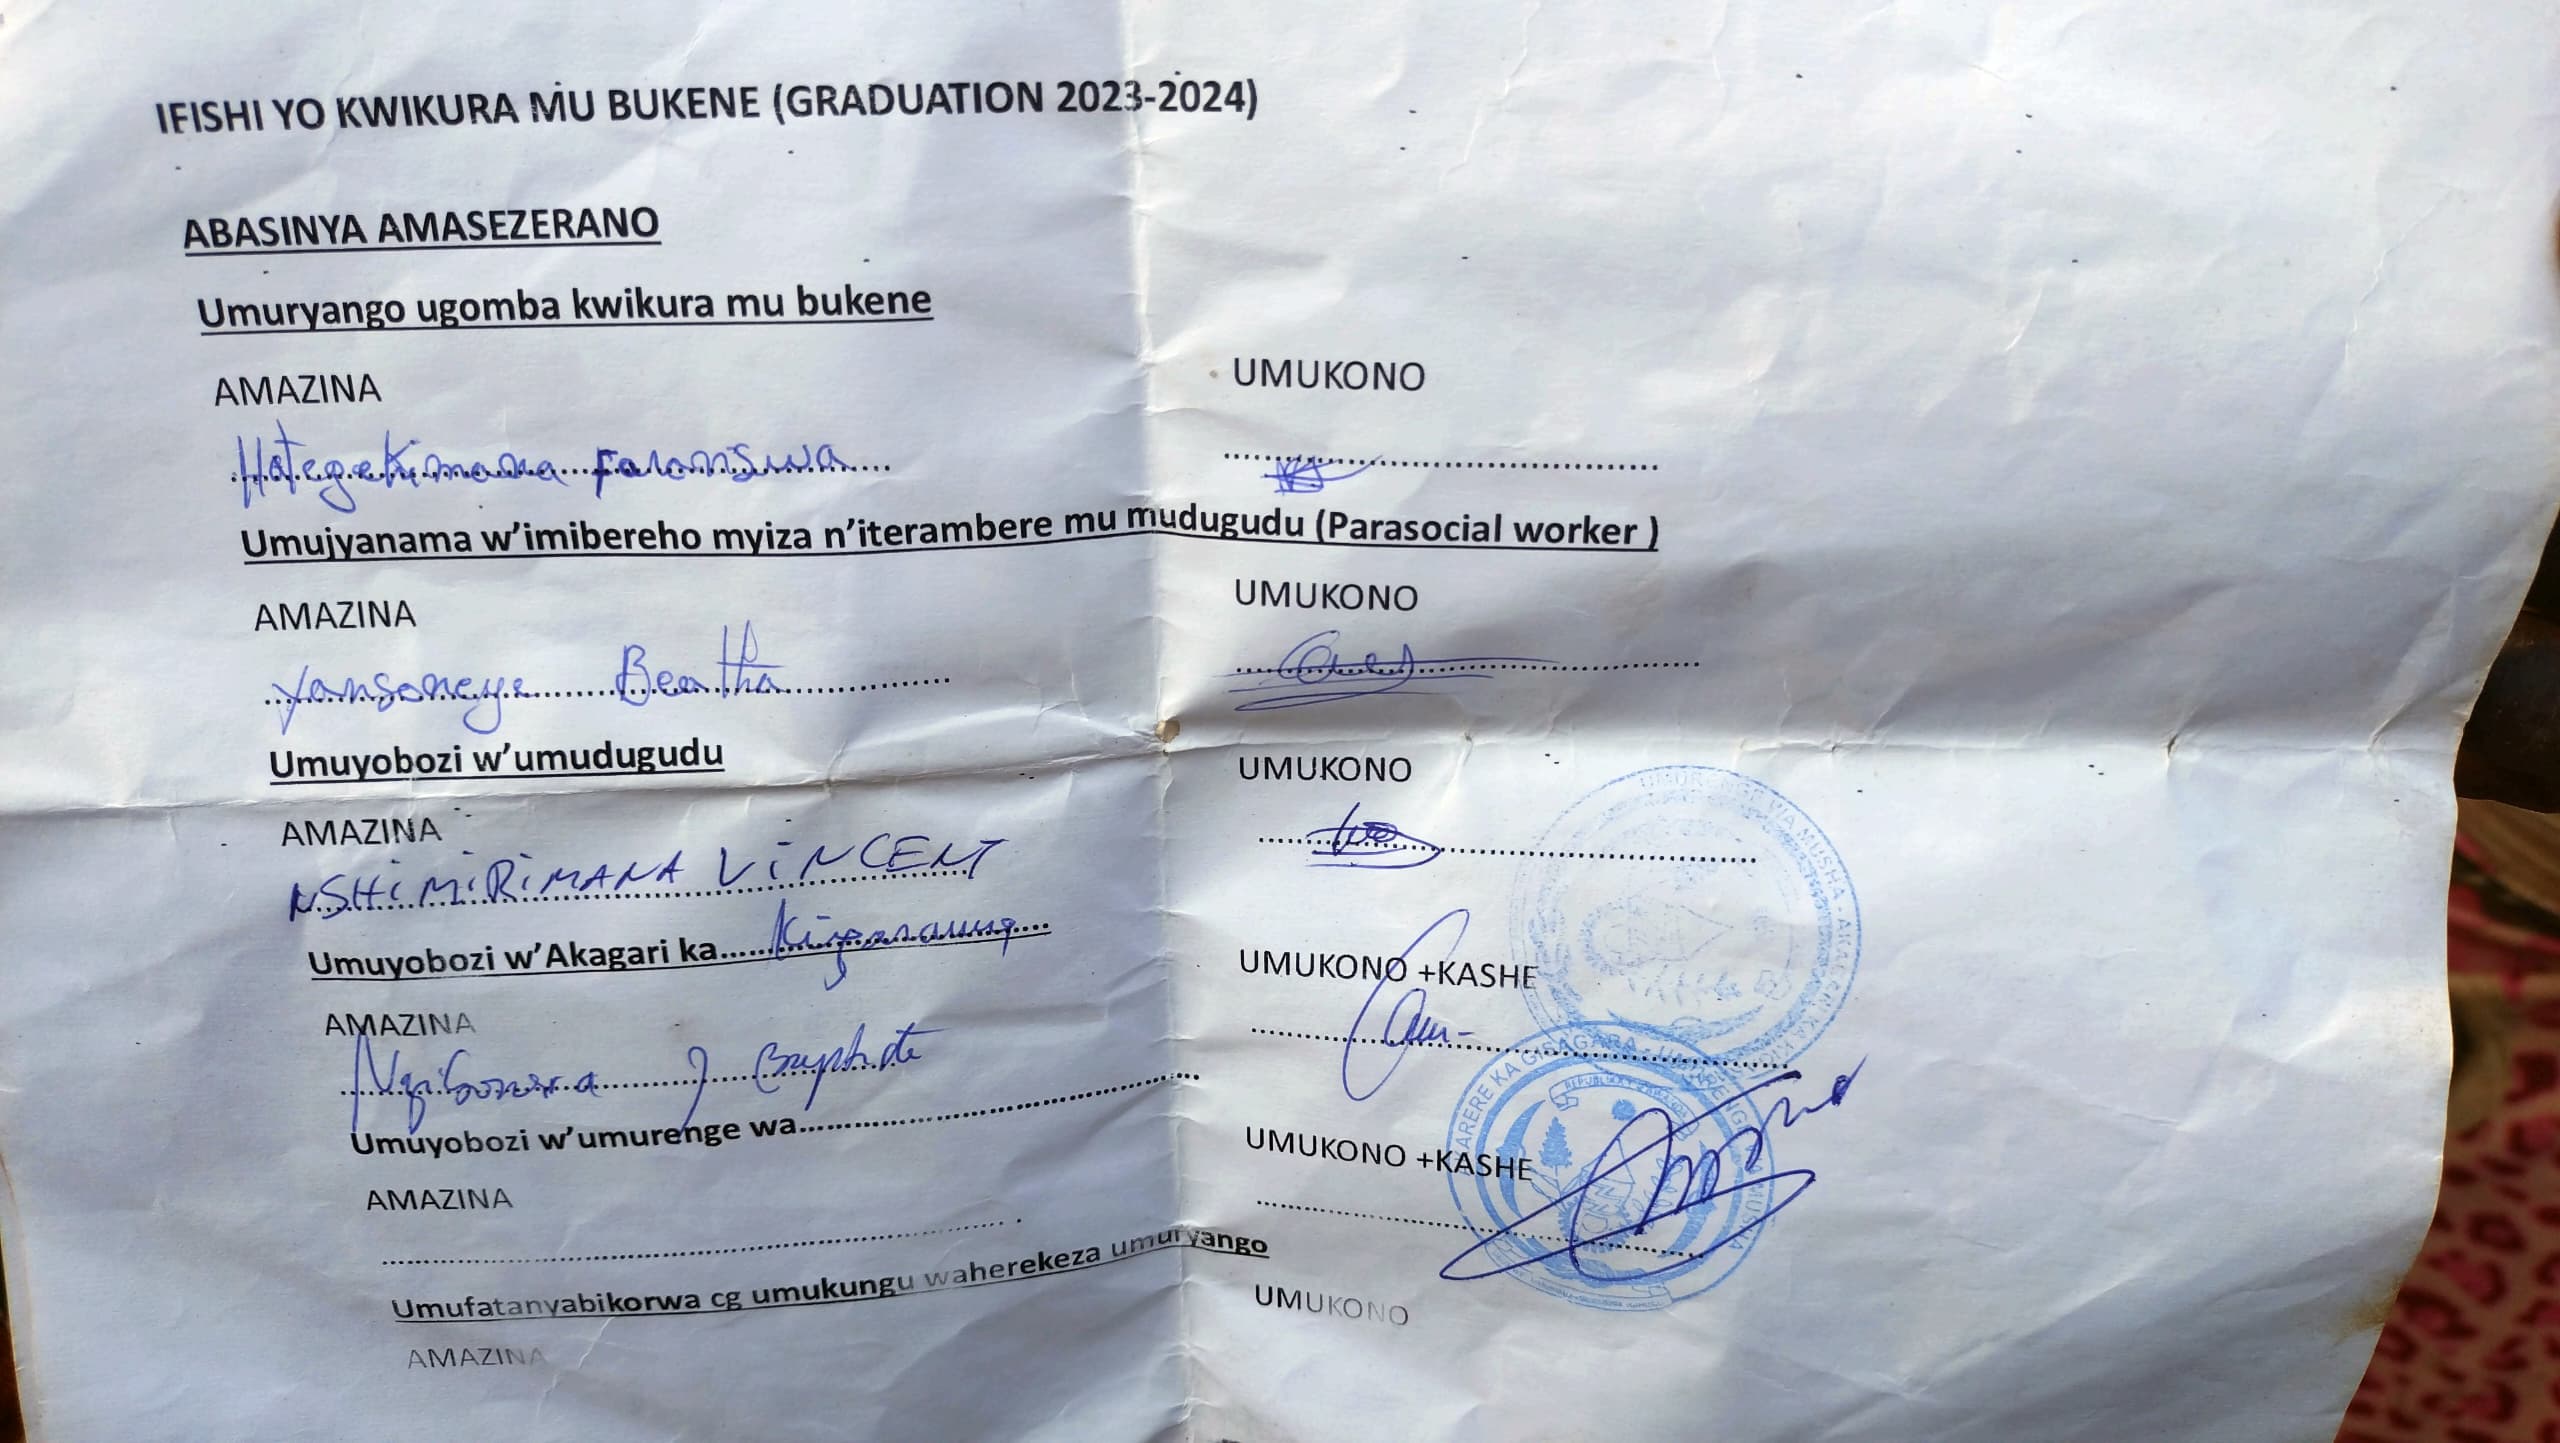 IFISHI YO KWIKURA MU BUKENE (GRADUATION 2023-2024)
ABASINYA AMASEZERANO
Umuryango ugomba kwikura mu bukene
AMAZINA UMUKONO
Hategekimana Faranswa
Umujyanama w'imibereho myiza n'iterambere mu mudugudu (Parasocial worker )
AMAZINA UMUKONO
Yansoneye Beatha
Umuyobozi w'umudugudu UMUKONO
AMAZINA
NSHiMiRiMANA ViNCENT
Umuyobozi w'Akagari ka......
UMUKONO +KASHE
AMAZINA
J Baptiste
Umuyobozi w'umurenge wa......
UMUKONO +KASHE
AMAZINA
Umufatanyabikorwa cg umukungu waherekeza umuryango
UMUKONO
AMAZINA
UMURENGE WA MUSHA - AKAGARI KA
AKARERE KA GISAGARA - UMURENGE WA MUSHA